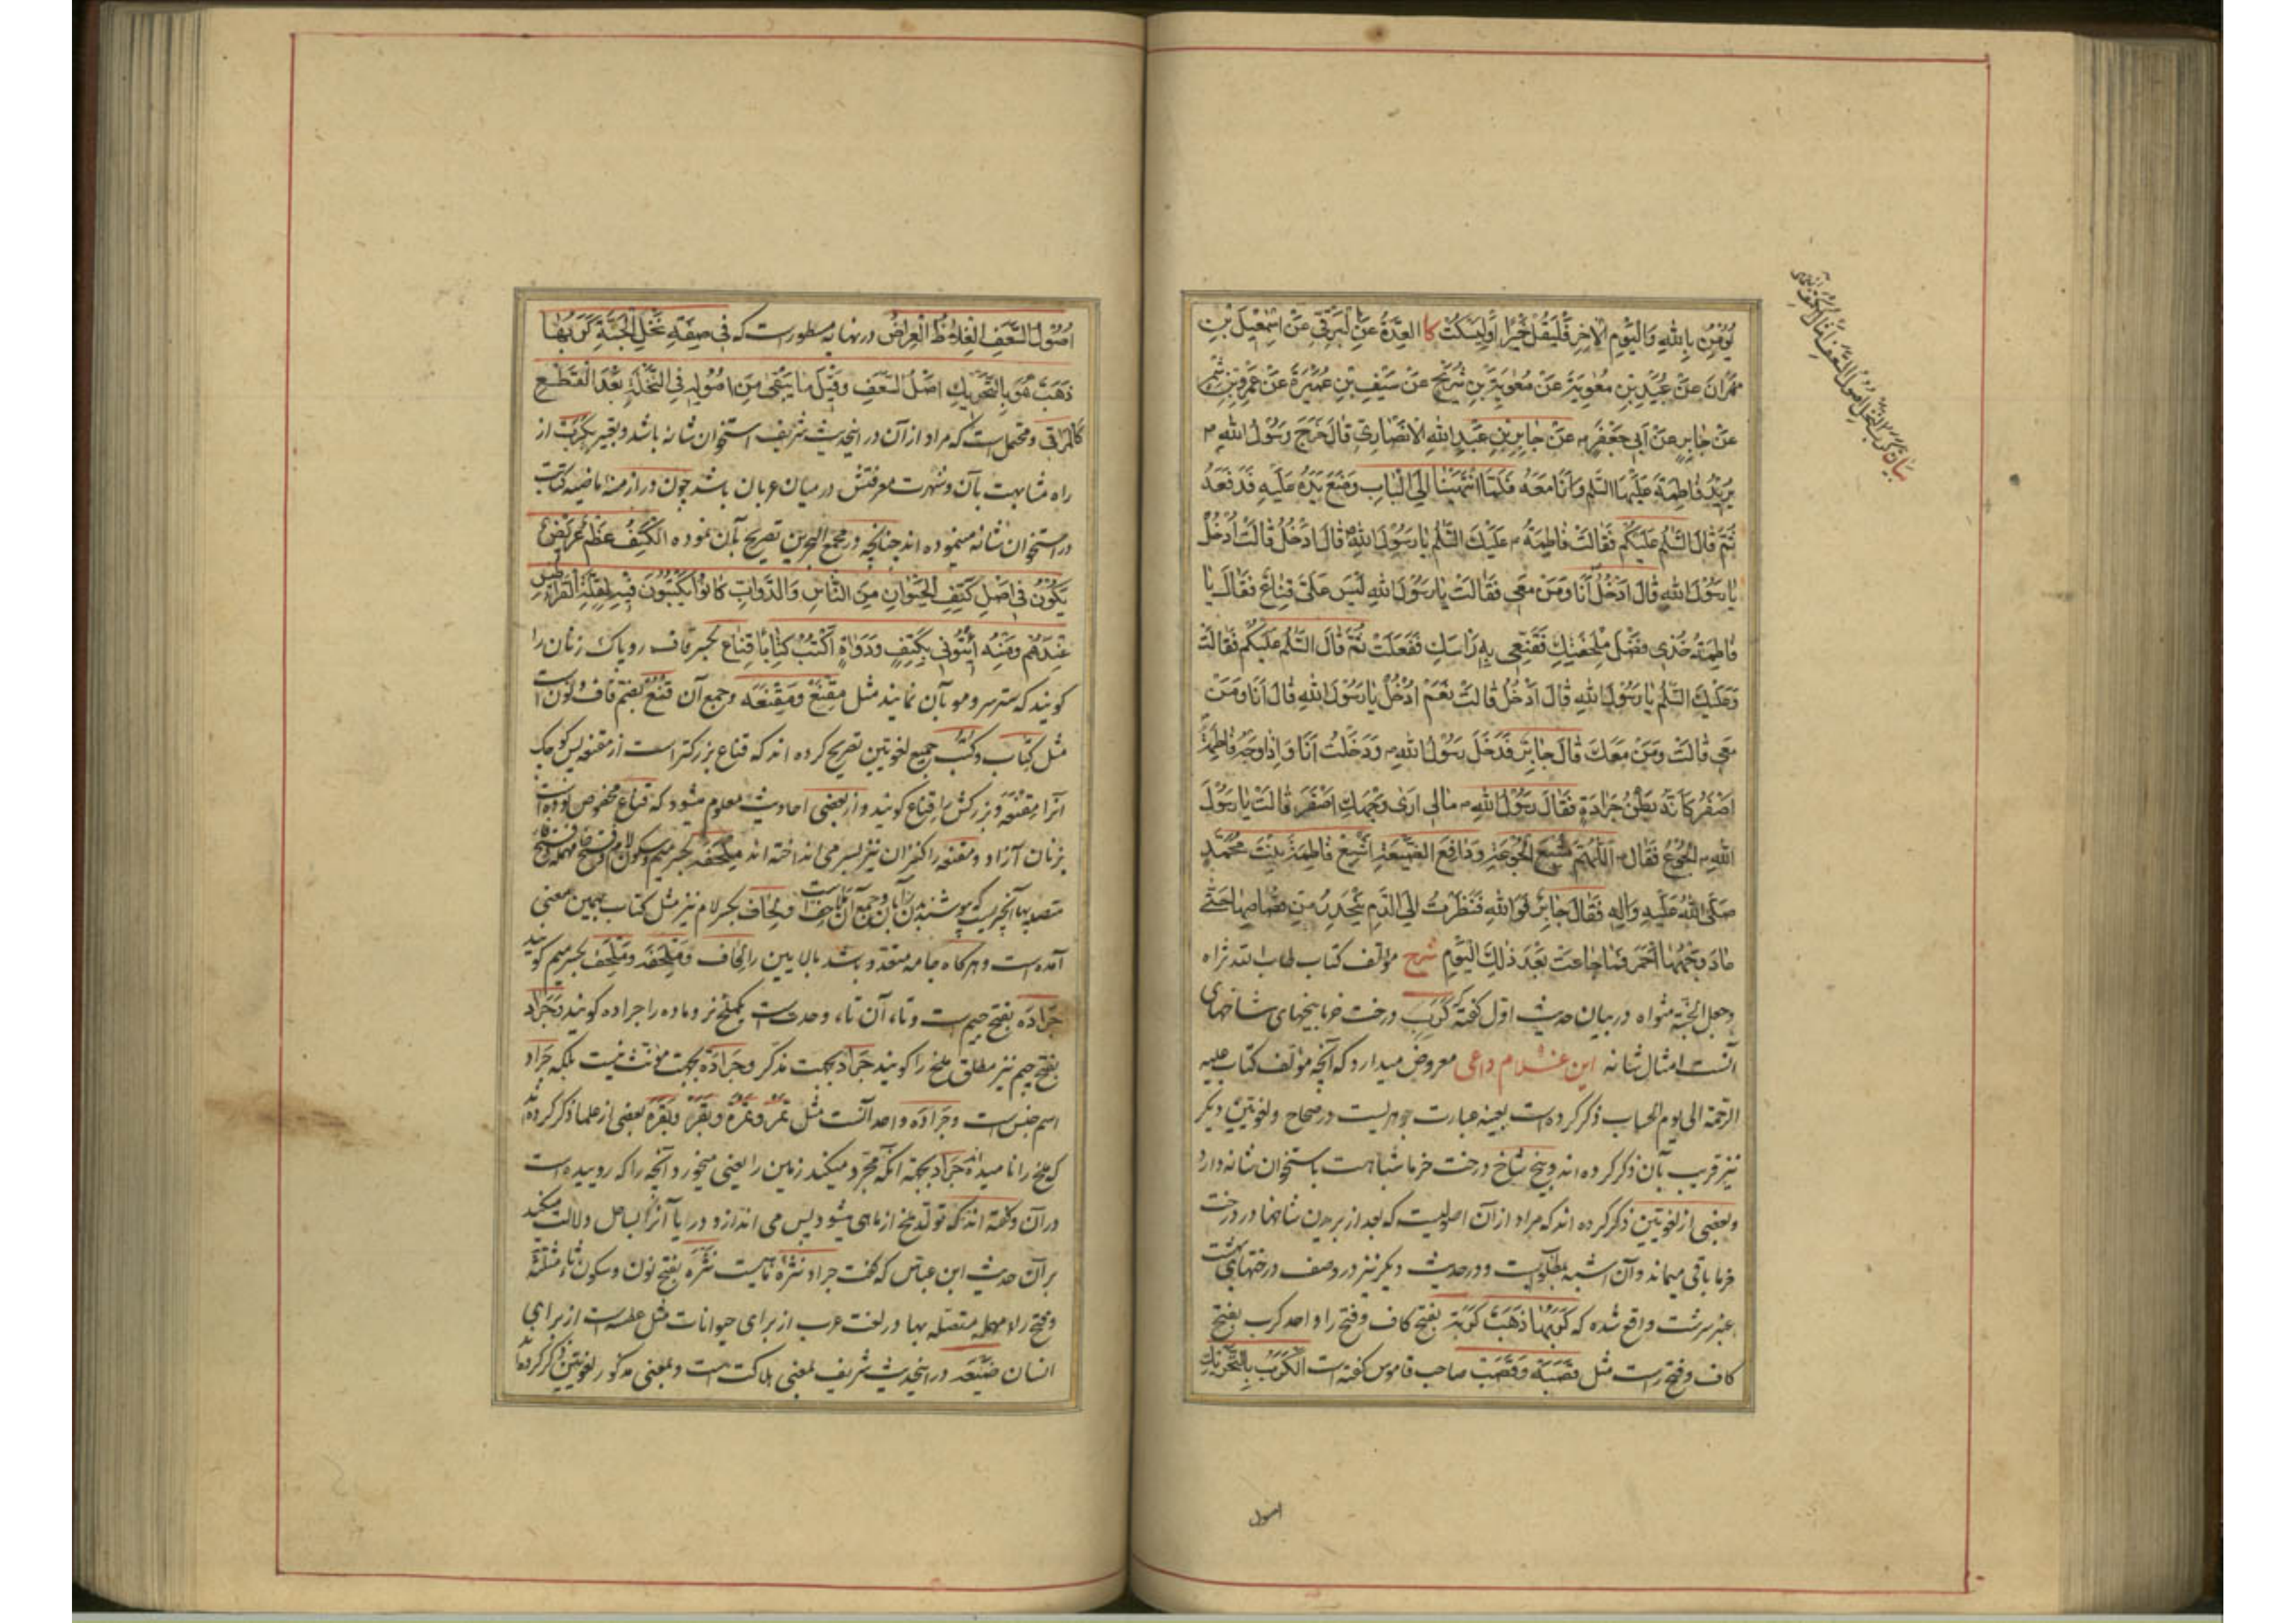 يُؤْمِنُ بِاللهِ وَالْيَوْمِ الْآخِرِ فَلْيَقُلْ خَيْرًا أَوْ لِيَسْكُتْ كا العِدَّةُ عَنِ الْبَرْقِيِّ عَنْ اِسْمٰعِيلَ بْنِ
مِهْرَانَ عَنْ عُبَيْدِ بْنِ مُعٰوِيَةَ عَنْ مُعٰوِيَةَ بْنِ شُرَيْحٍ عَنْ سَيْفِ بْنِ عُمَيْرَةَ عَنْ عَمْرِو بْنِ شِمْرٍ
عَنْ جَابِرٍ عَنْ أَبِي جَعْفَرٍ عَنْ جَابِرِ بْنِ عَبْدِ اللهِ الْأَنْصَارِيِّ قَالَ خَرَجَ رَسُولُ اللهِ ص
يُرِيدُ فَاطِمَةَ عَلَيْهَا السَّلٰمُ وَأَنَا مَعَهُ فَلَمَّا انْتَهَيْنَا إِلَى الْبَابِ وَضَعَ يَدَهُ عَلَيْهِ فَدَفَعَهُ
ثُمَّ قَالَ السَّلٰمُ عَلَيْكُمْ فَقَالَتْ فَاطِمَةُ عَلَيْكَ السَّلٰمُ يَا رَسُولَ اللهِ قَالَ أَدْخُلُ قَالَتْ أُدْخُلْ
يَا رَسُولَ اللهِ قَالَ أَدْخُلُ أَنَا وَمَنْ مَعِي فَقَالَتْ يَا رَسُولَ اللهِ لَيْسَ عَلَيَّ قِنَاعٌ فَقَالَ يَا
فَاطِمَةُ خُذِي فَضْلَ مِلْحَفَتِكِ فَقَنِّعِي بِهِ رَأْسَكِ فَفَعَلَتْ ثُمَّ قَالَ السَّلٰمُ عَلَيْكُمْ فَقَالَتْ
وَعَلَيْكَ السَّلٰمُ يَا رَسُولَ اللهِ قَالَ أَدْخُلُ قَالَتْ نَعَمْ اُدْخُلْ يَا رَسُولَ اللهِ قَالَ أَنَا وَمَنْ
مَعِي قَالَتْ وَمَنْ مَعَكَ قَالَ جَابِرٌ فَدَخَلَ رَسُولُ اللهِ وَدَخَلْتُ أَنَا وَإِذَا وَجْهُ فَاطِمَةَ
اَصْفَرُ كَأَنَّهُ بَطْنُ جَرَادَةٍ فَقَالَ رَسُولُ اللهِ مَالِي أَرَى وَجْهَكِ اَصْفَرَ قَالَتْ يَا رَسُولَ
اللهِ الْجُوعُ فَقَالَ اَللّٰهُمَّ مُشْبِعَ الْجَوْعَةِ وَدَافِعَ الضَّيْعَةِ اَشْبِعْ فَاطِمَةَ بِنْتَ مُحَمَّدٍ
صَلَّى اللهُ عَلَيْهِ وَآلِهِ فَقَالَ جَابِرٌ فَوَاللهِ فَنَظَرْتُ إِلَى الدَّمِ يَنْحَدِرُ مِنْ قُصَاصِهَا حَتَّى
عَادَ وَجْهُهَا أَحْمَرَ فَمَا جَاعَتْ بَعْدَ ذٰلِكَ الْيَوْمِ شرح مؤلف کتاب طاب الله ثراه
وجعل الجنة مثواه در بیان حدیث اول گفته که کَرَبْ درخت خرما بیخهای شاخهای
آنست امثال شانه این غلام داعی معروض میدارد که آنچه مؤلف کتاب علیه
الرحمة الی یوم الحساب ذکر کرده است بعینه عبارت جوهریست در صحاح ولغویین دیگر
نیز قریب بآن ذکر کرده اند و بیخ شاخ درخت خرما شباهت باستخوان شانه دارد
وبعضی از لغویین ذکر کرده اند که مراد از آن اصولیست که بعد از بریدن شاخها در درخت
خرما باقی میماند و آن اشبه بمطلوبست و در حدیث دیگر نیز در وصف درختهای بهشت
عنبر سرشت واقع شده که کَرَبُهَا ذَهَبٌ کَرَبَة بفتح کاف و فتح را واحد کرب بفتح
کاف و فتح راست مثل قَصَبَة وَقَصَبْ صاحب قاموس گفته است اَلْكَرَبُ بِالتَّحْرِيكِ
اصول
بیان کرب النخل اصول السعف امثال الکتف
اُصُولُ السَّعَفِ الْغِلَاظُ الْعِرَاضُ در نهایه مسطور است که فِي صِفَةِ نَخْلِ الْجَنَّةِ كَرَبُهَا
ذَهَبٌ هُوَ بِالتَّحْرِيكِ اَصْلُ السَّعَفِ وَقِيلَ مَا يَبْقَى مِنْ اُصُولِهِ فِي النَّخْلَةِ بَعْدَ الْقَطْعِ
كَالْمَرَاقِي و محتملست که مراد از آن در اینحدیث شریف استخوان شانه باشد و تعبیر بکرب از
راه مشابهت بآن و شهرت معرفتش در میان عربان باشد چون در ازمنه ماضیه کتابت
در استخوان شانه مینموده اند چنانچه در مجمع البحرین تصریح بآن نموده الْكَتِفُ عَظْمٌ عَرِيضٌ
يَكُونُ فِي اَصْلِ كَتِفِ الْحَيَوَانِ مِنَ النَّاسِ وَالدَّوَابِّ كَانُوا يَكْتُبُونَ فِيهِ لِقِلَّةِ الْقَرَاطِيسِ
عِنْدَهُمْ وَمِنْهُ اِئْتُونِي بِكَتِفٍ وَدَوَاةٍ أَكْتُبْ كِتَابًا قِنَاع بکسر قاف رو پاک زنان را
گویند که ستر سر و مو بآن نمایند مثل مِقْنَعْ وَمِقْنَعَه و جمع آن قُنُعْ بضم قاف و نون است
مثل کِتاب و کُتُب جمیع لغویین تصریح کرده اند که قناع بزرگتر است از مقنعه پس کوچک
آنرا مِقْنَعَه و بزرگش را قِناع گویند و از بعضی احادیث معلوم میشود که قناع مخصوص بوده است
بزنان آزاد و مقنعه را کنیزان نیز بسر می انداخته اند مِلْحَفَه بکسر میم و سکون لام و فتح حاء مهمله و فتح فاء
متصله بها آنچیزیست که بپوشند بدن را بآن و جمع آن مَلَاحِف است و لِحاف بکسر لام نیز مثل کتاب بهمین معنی
آمده است و هر گاه جامه متعدد باشد بالایین را لِحاف وَمِلْحَفَه وَمِلْحَف بکسر میم گویند
جَرَادَه بفتح جیم است و تاء آن تاء وحدتست یکملخ نر و ماده را جراده گویند وَجَرَاد
بفتح جیم نیز مطلق ملخ را گویند جَرَاد بجهت مذکر و جَرَادَة بجهت مؤنث نیست بلکه جَرَاد
اسم جنس است و جَرَادَه واحد آنست مثل تَمْر و تَمْرَة و بَقَر و بَقَرَة بعضی از علما ذکر کرده اند
که ملخ را نامیده اند جَرَاد بجهة آنکه مجرّد میکند زمین را یعنی میخورد آنچه را که روییده است
در آن و گفته اند که تولد ملخ از ماهی میشود پس می اندازد دریا آنرا بساحل و دلالت میکند
بر آن حدیث ابن عباس که گفت جراد نَثْرَةُ ماهیست نَثْرَه بفتح نون و سکون ثاء مثلثه
و فتح راء مهمله متصله بها در لغت عرب از برای حیوانات مثل عطسه است از برای
انسان ضَيْعَه در اینحدیث شریف بمعنی هلاکت است و بمعنی مذکور لغویین ذکر کرده اند